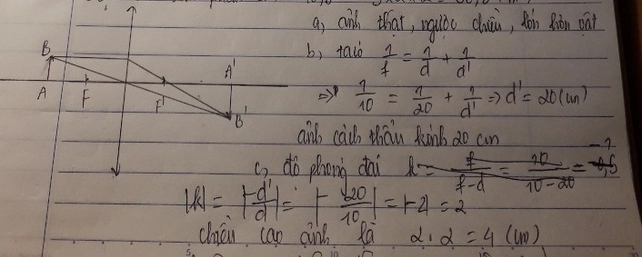 a, ảnh thật, ngược chiều, lớn hơn vật
b, ta có 1/f = 1/d + 1/d'
=> 1/10 = 1/20 + 1/d' => d' = 20 (cm)
ảnh cách thấu kính 20 cm
c, độ phóng đại k = f/f-d = 10/10-20 = -1
|k| = |-d'/d| = |-20/10| = |-2| = 2
chiều cao ảnh là 2.2 = 4 (cm)
B
A
F
F'
A'
B'